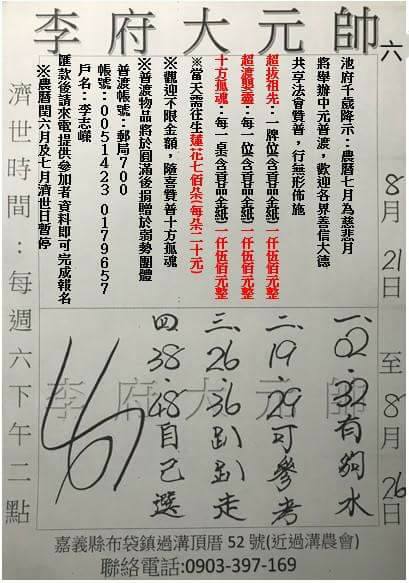 李府大元帥
六
8月21日至8月26日
池府千歲降示：農曆七月為慈悲月
將舉辦中元普渡，歡迎各界善信大德
共享法會贊普，行無形佈施
超拔祖先：一牌位(含普品金紙)一仟伍佰元整
超渡嬰靈：每一位(含普品金紙)一仟伍佰元整
十方孤魂：每一桌(含普品金紙)一仟伍佰元整
※當天需往生蓮花七佰朵(每朵二十元)
※觀迎不限金額，隨喜贊普十方孤魂
※普渡物品將於圓滿後捐贈於弱勢團體
普渡帳號：郵局700
帳號：0051423 0179657
戶名：李志嶸
匯款後請來電提供參加者資料即可完成報名
※農曆閏六月及七月濟世日暫停
濟世時間：每週六下午二點
李府大元帥
一、02.32有夠水
二、19.29可參考
三、26.36趴趴走
四、38.48自己選
嘉義縣布袋鎮過溝頂厝 52 號(近過溝農會)
聯絡電話:0903-397-169